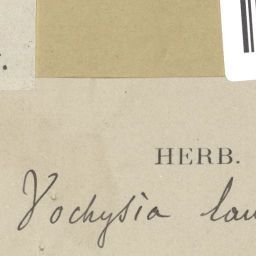 HERB.
Vochysia